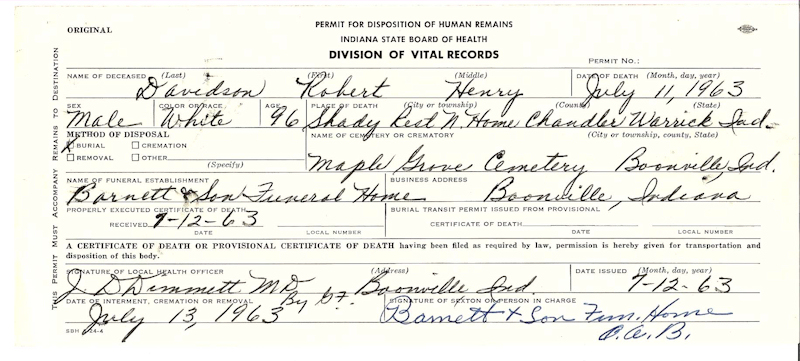 ORIGINAL
PERMIT FOR DISPOSITION OF HUMAN REMAINS
INDIANA STATE BOARD OF HEALTH
DIVISION OF VITAL RECORDS
PERMIT NO.:
THIS PERMIT MUST ACCOMPANY REMAINS TO DESTINATION
NAME OF DECEASED (Last) (First) (Middle) DATE OF DEATH (Month, day, year)
Davidson Robert Henry July 11, 1963
SEX COLOR OR RACE AGE PLACE OF DEATH (City or township) (County) (State)
Male White 96 Shady Rest N. Home Chandler Warrick Ind.
METHOD OF DISPOSAL NAME OF CEMETERY OR CREMATORY (City or township, county, State)
X BURIAL CREMATION
REMOVAL OTHER (Specify)
Maple Grove Cemetery Boonville, Ind.
NAME OF FUNERAL ESTABLISHMENT BUSINESS ADDRESS
Barnett & Son Funeral Home Boonville, Indiana
PROPERLY EXECUTED CERTIFICATE OF DEATH BURIAL TRANSIT PERMIT ISSUED FROM PROVISIONAL
RECEIVED 7-12-63 CERTIFICATE OF DEATH
DATE LOCAL NUMBER DATE LOCAL NUMBER
A CERTIFICATE OF DEATH OR PROVISIONAL CERTIFICATE OF DEATH having been filed as required by law, permission is hereby given for transportation and
disposition of this body.
SIGNATURE OF LOCAL HEALTH OFFICER (Address) DATE ISSUED (Month, day, year)
J D Dimmett MD By Boonville Ind. 7-12-63
DATE OF INTERMENT, CREMATION OR REMOVAL SIGNATURE OF SEXTON OR PERSON IN CHARGE
July 13, 1963 Barnett & Son Fun. Home
C.A.B.
SBH 24-4